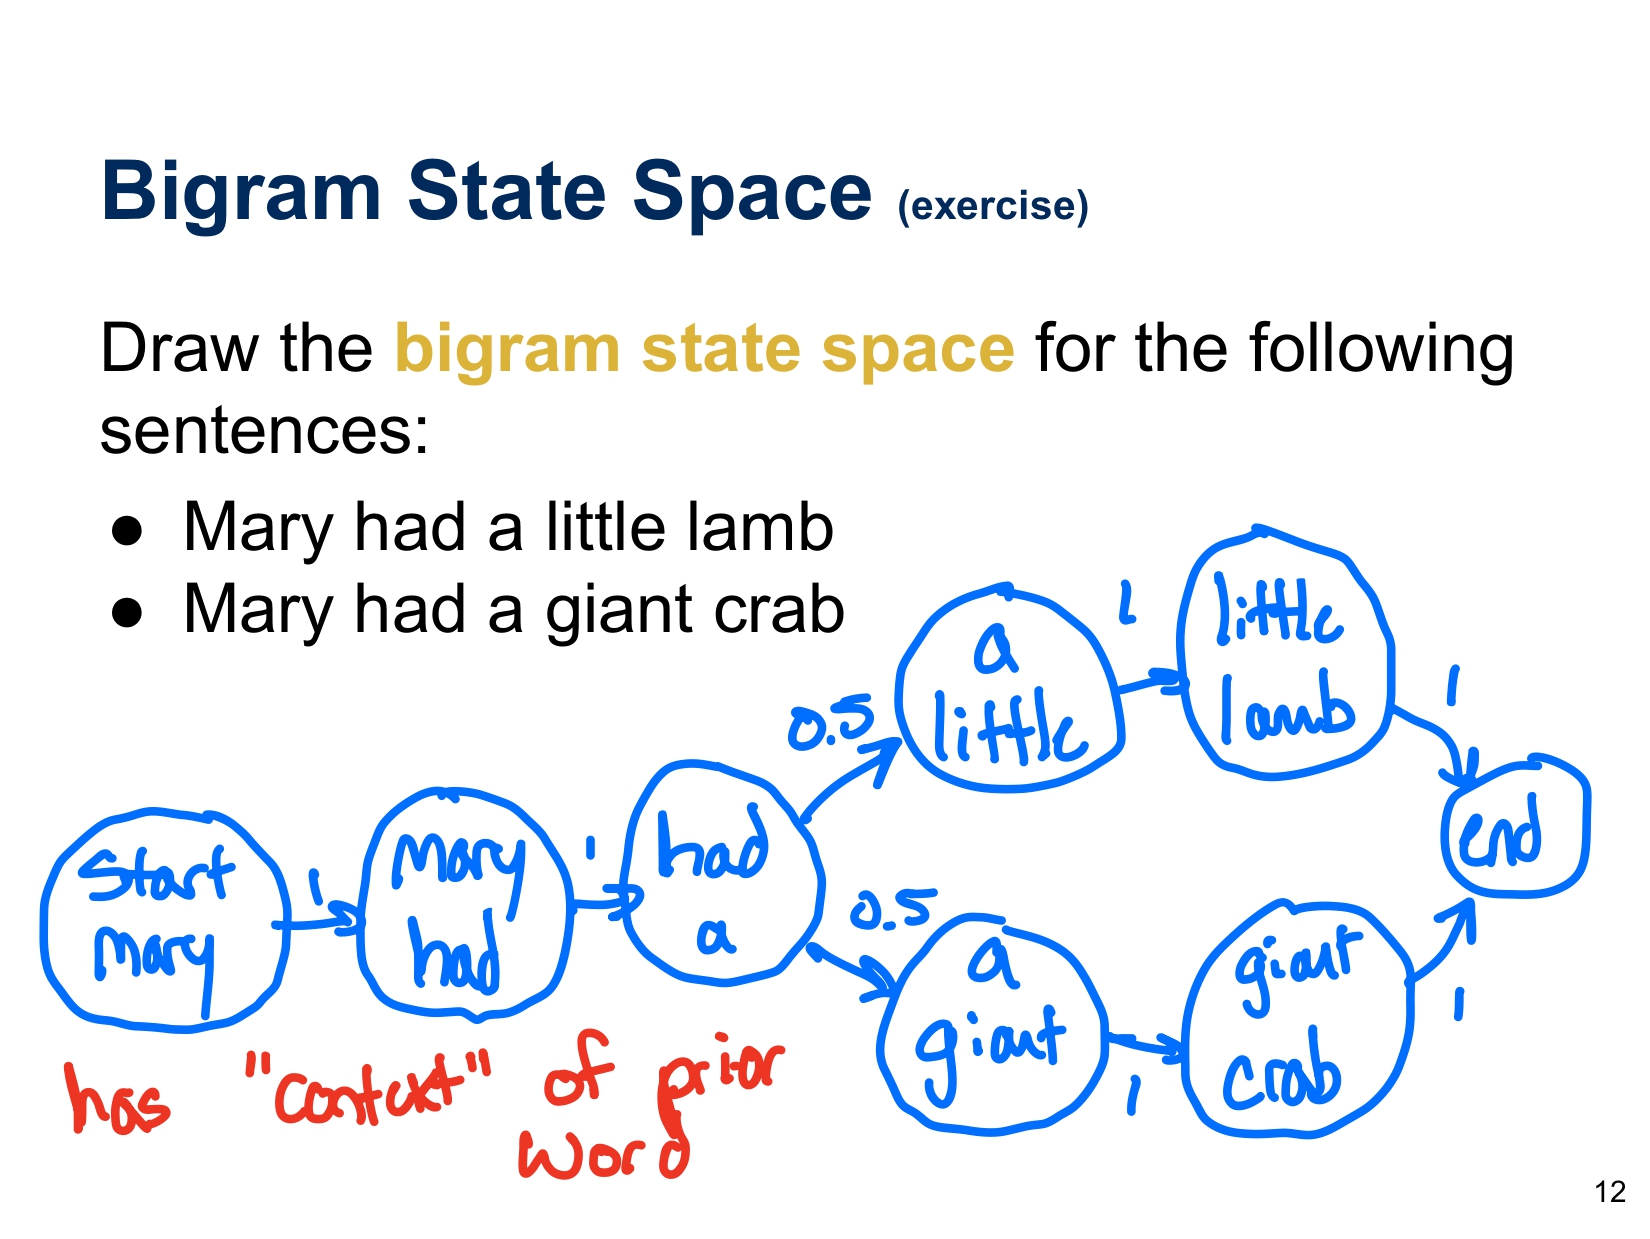 Bigram State Space (exercise)
Draw the bigram state space for the following
sentences:
● Mary had a little lamb
● Mary had a giant crab
start
mary
1
mary
had
1
had
a
0.5
a
little
1
little
lamb
1
0.5
a
giant
1
giant
crab
1
end
has "context" of prior
word
12